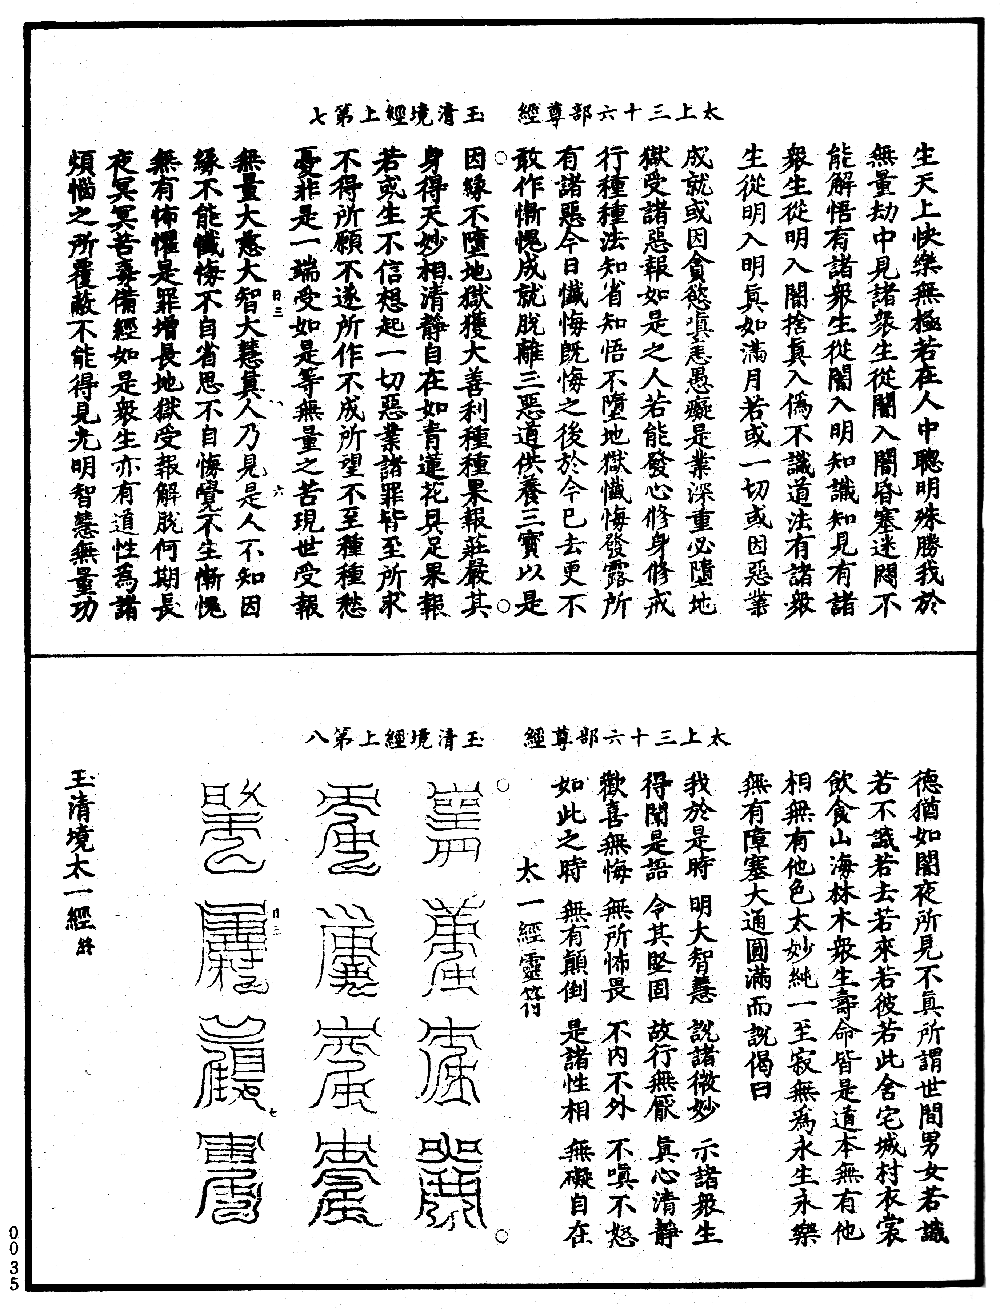 太上三十六部尊經　玉清境經上第七
生天上快樂無極若在人中聰明殊勝我於
無量劫中見諸衆生從闇入闇昏塞迷悶不
能解悟有諸衆生從闇入明知識知見有諸
衆生從明入闇捨真入僞不識道法有諸衆
生從明入明真如滿月若或一切或因惡業
成就或因貪慾瞋恚愚癡是業深重必墮地
獄受諸惡報如是之人若能發心修身修戒
行種種法知省知悟不墮地獄懺悔發露所
有諸惡今日懺悔既悔之後於今已去更不
敢作慚愧成就脫離三惡道供養三寶以是
因緣不墮地獄獲大善利種種果報莊嚴其
身得天妙相清靜自在如青蓮花具足果報
若或生不信想起一切惡業諸罪皆至所求
不得所願不遂所作不成所望不至種種愁
憂非是一端受如是等無量之苦現世受報
日三　六
無量大慈大智大慧真人乃見是人不知因
緣不能懺悔不自省思不自悔覺不生慚愧
無有怖懼是罪增長地獄受報解脫何期長
夜冥冥苦毒備經如是衆生亦有道性爲諸
煩惱之所覆蔽不能得見光明智慧無量功
太上三十六部尊經　玉清境經上第八
德猶如闇夜所見不真所謂世間男女若識
若不識若去若來若彼若此舍宅城村衣裳
飲食山海林木衆生壽命皆是道本無有他
相無有他色太妙純一至寂無爲永生永樂
無有障塞大通圓滿而說偈曰
我於是時　明大智慧　說諸微妙　示諸衆生
得聞是語　令其堅固　故行無厭　真心清靜
歡喜無悔　無所怖畏　不內不外　不嗔不怒
如此之時　無有顛倒　是諸性相　無礙自在
太一經靈符
日三　七
玉清境太一經終
0035